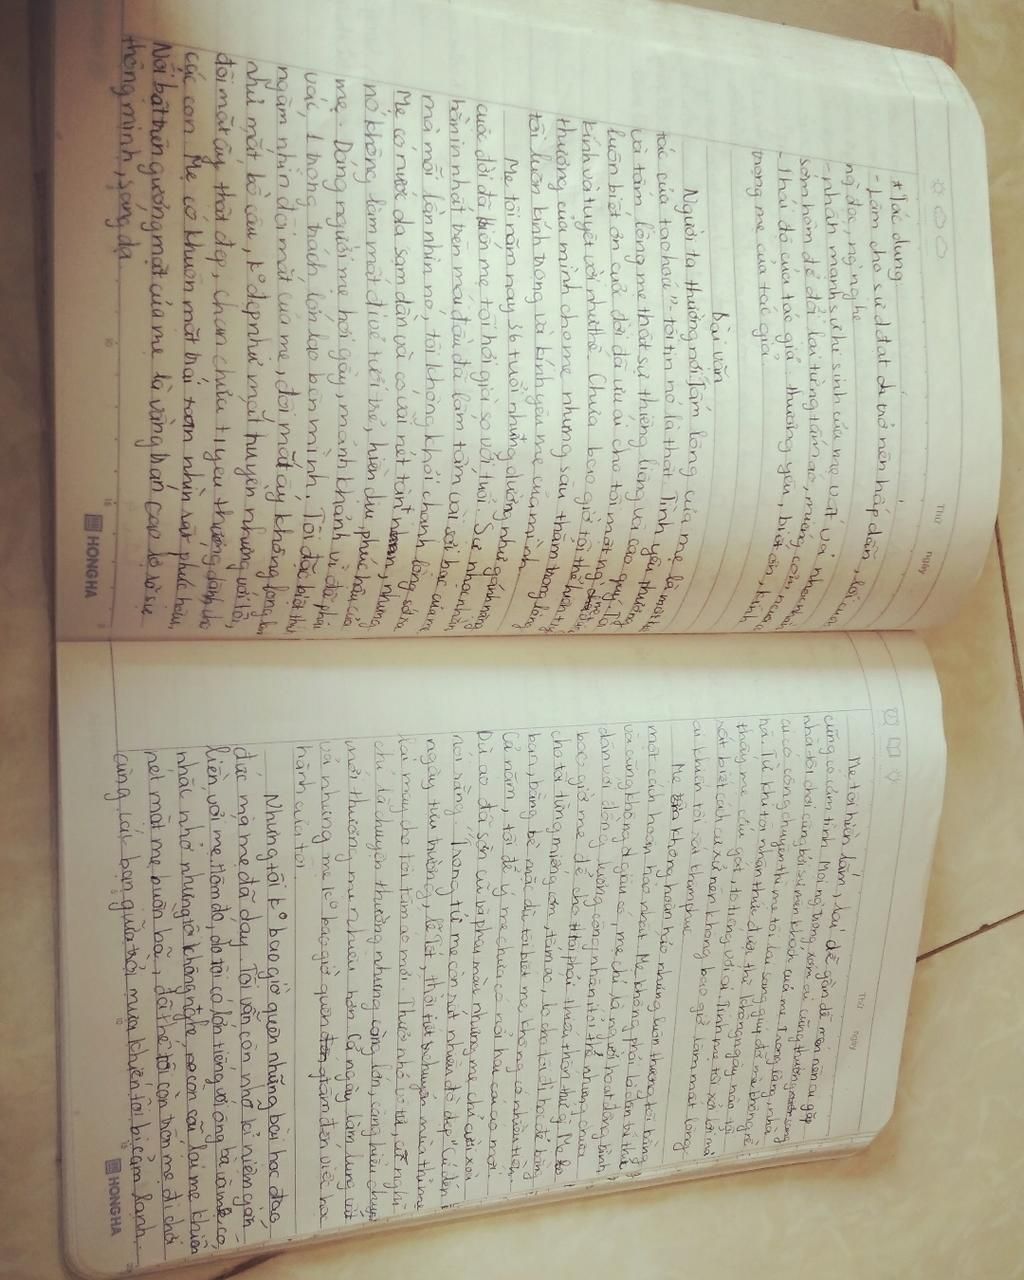 Thứ
Ngày
* Tác dụng
- Làm cho sự diễn đạt trở nên hấp dẫn, lôi cuốn
ng đọc, ng nghe
- nhấn mạnh sự hi sinh của mẹ vất vả
sớm hôm để đổi lại từng tấm áo, miếng cơm
- Thái độ của tác giả: thương yêu, biết ơn, kính
trọng mẹ của tác giả.
Bài văn
Người ta thường nói "Tấm lòng của mẹ là một
tác của tạo hoá" - tôi tin nó là thật. Tình yêu thương
và tấm lòng mẹ thật sự thiêng liêng và cao quý. Tôi
luôn biết ơn cuộc đời đã ưu ái cho tôi một ng mẹ
kính và tuyệt vời như thế. Chưa bao giờ tôi thể hiện
thương của mình cho mẹ nhưng sâu thẳm trong lòng
tôi luôn kính trọng và kính yêu mẹ của mình.
Mẹ tôi năm nay 36 tuổi nhưng dường như gánh nặng
cuộc đời đã khiến mẹ tôi hơi già so với tuổi. Sự nhọc nhằn
hằn in nhất trên mái đầu đã lấm tấm vài sợi bạc của mẹ
mà mỗi lần nhìn nó, tôi không khỏi chạnh lòng xót xa
Mẹ có nước da sạm dần và có vài nét tàn nhang, nhưng
nó không làm mất đi vẻ tươi trẻ, hiền dịu, phúc hậu của
mẹ. Dáng người mẹ hơi gầy, mảnh khảnh vì đã phải
vác 1 trọng trách lớn lao bên mình. Tôi đặc biệt thích
ngắm nhìn đôi mắt của mẹ, đôi mắt ấy không long lanh
như mắt bồ câu, kº đẹp như mắt huyền nhưng với tôi,
đôi mắt ấy thật đẹp, chan chứa t yêu thương dành cho
các con. Mẹ có khuôn mặt trái xoan nhìn rất phúc hậu,
Nổi bật trên gương mặt của mẹ là vầng trán cao lộ rõ sự
thông minh, sáng dạ.
HONG HA
Thứ
Ngày
Mẹ tôi hiền lắm, lại dễ gần dễ mến nên ai gặp
cũng có cảm tình. Mọi ng trong xóm ai cũng thường sang
nhà tôi chơi cũng bởi sự mến khách của mẹ. Trong làng, nhà
ai có công chuyện thì mẹ tôi lại sang giúp đỡ mà không nề
hà. Từ khi tôi nhận thức được thì không ngày nào tôi
thấy mẹ cáu gắt, to tiếng với ai. Tính mẹ tôi xởi lởi mà
rất biết cách cư xử nên không bao giờ làm mất lòng
ai khiến tôi rất khâm phục.
Mẹ không hoàn hảo nhưng luôn thương tôi bằng
một cách hoàn hảo nhất. Mẹ không phải bà tiên
và cũng không giàu có, mẹ chỉ là người lao động bình
dân với đồng lương công nhân ít ỏi thế nhưng chưa
bao giờ mẹ để cho t phải thiếu thốn thứ gì. Mẹ lo
cho tôi từng miếng cơm, tấm áo, lo cho tôi đi học để bằng
bạn, bằng bè mặc dù tôi biết mẹ không có nhiều tiền.
Cả năm, tôi để ý mẹ chưa có nổi hai cái áo mới.
Dù áo đã sờn cũ và phai màu nhưng mẹ chỉ cười xoà
nói rằng "Trong tủ mẹ còn rất nhiều đồ đẹp". Cứ đến
ngày tựu trường, lễ Tết, thời tiết chuyển mùa thì mẹ
lại may cho tôi tấm áo mới. Thuở nhỏ vô tư, cứ nghĩ
chỉ là chuyện thường nhưng càng lớn, càng hiểu chuyện
mới thương mẹ nhiều hơn. Cả ngày làm lụng vất
vả nhưng mẹ kº bao giờ quên quan tâm đến việc học
hành của tôi.
Nhưng tôi kº bao giờ quên những bài học đáng
đức mà mẹ đã dạy. Tôi vẫn còn nhớ kỉ niệm gắn
liền với mẹ. Hôm đó, do tôi có lớn tiếng với ông bà và mẹ có
nhắc nhở nhưng tôi không nghe, còn cãi lại mẹ khiến
nét mặt mẹ buồn bã, đã thế tôi còn trốn mẹ đi chơi
cùng lũ bạn giữa trời mưa khiến tôi bị cảm lạnh.
HONG HA